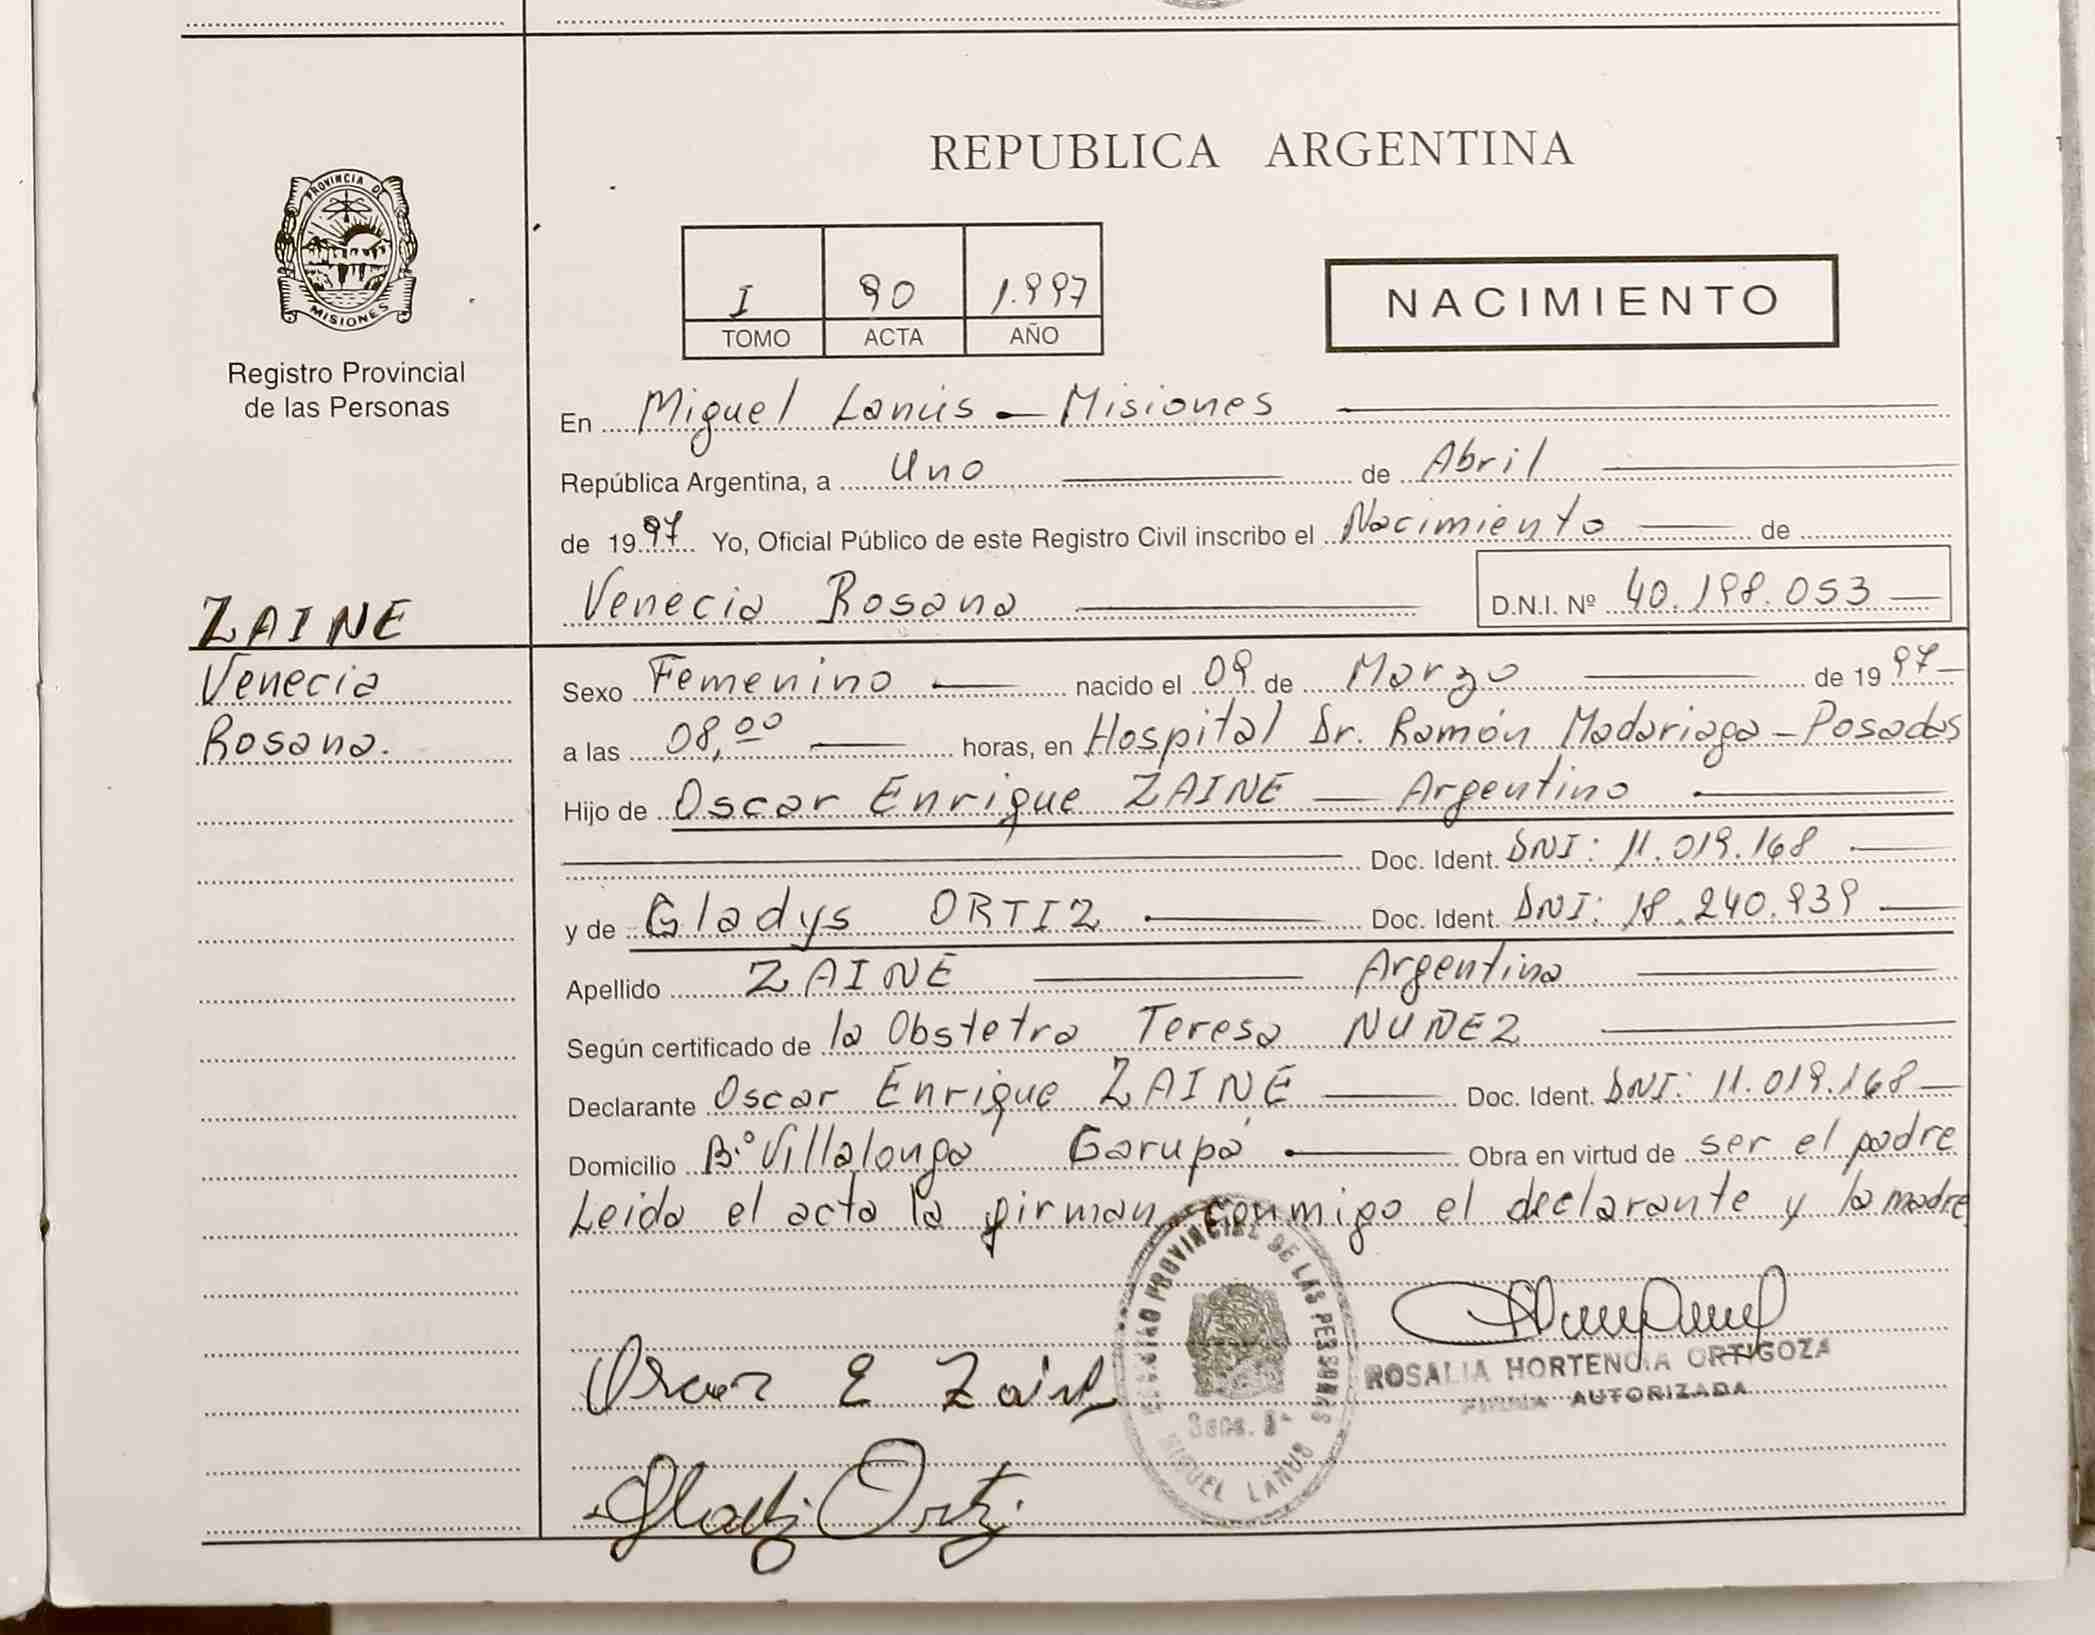 PROVINCIA DE
MISIONES
Registro Provincial
de las Personas
REPUBLICA ARGENTINA
I 90 1.997
TOMO ACTA AÑO
NACIMIENTO
En Miguel Lanús - Misiones
República Argentina, a Uno de Abril
de 1997 Yo, Oficial Público de este Registro Civil inscribo el Nacimiento de
Venecia Rosana D.N.I. Nº 40.198.053
ZAINE
Venecia
Rosana.
Sexo Femenino nacido el 09 de Marzo de 1997
a las 08,00 horas, en Hospital Dr. Ramón Madariaga - Posadas
Hijo de Oscar Enrique ZAINE - Argentino
Doc. Ident. DNI: 11.019.168
y de Gladys ORTIZ Doc. Ident. DNI: 18.240.939
Apellido ZAINE Argentina
Según certificado de la Obstetra Teresa NUÑEZ
Declarante Oscar Enrique ZAINE Doc. Ident. DNI: 11.019.168
Domicilio B.º Villalonga Garupá Obra en virtud de ser el padre
Leida el acta la firman conmigo el declarante y la madre
REGISTRO PROVINCIAL DE LAS PERSONAS
MIGUEL LANUS
ROSALIA HORTENCIA ORTIGOZA
FIRMA AUTORIZADA
Oscar E Zaine
Gladys Ortiz